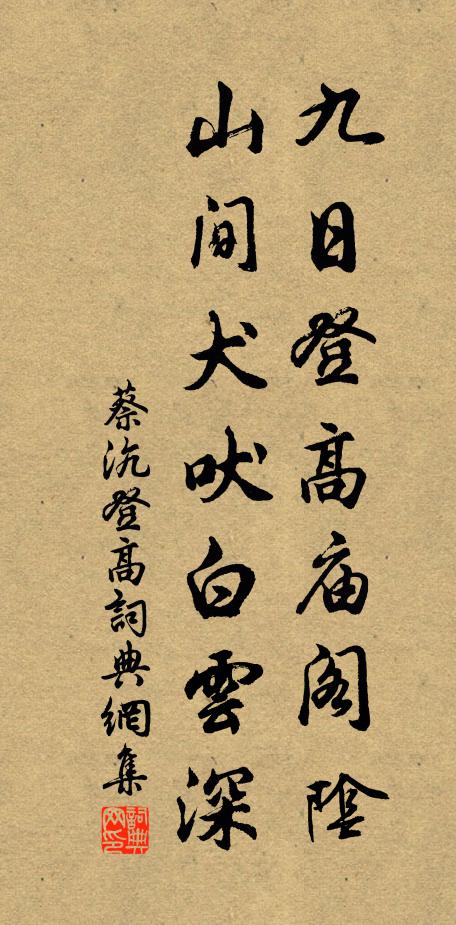 九日登高庙阁陰
山间犬吠白雲深
蔡沉登高詞典網集
詞典網印